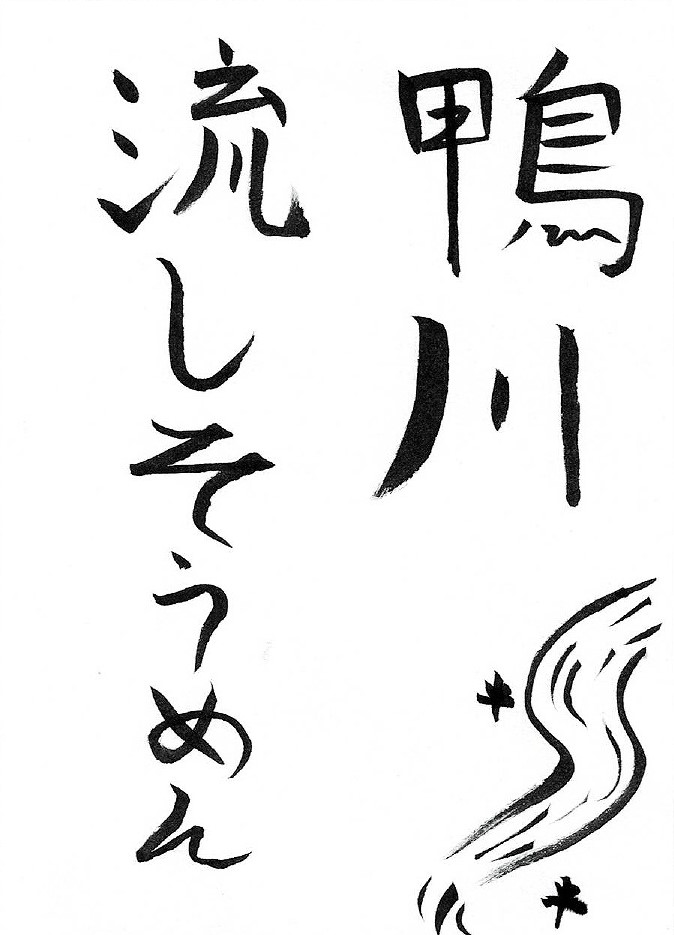 鴨川
流しそうめん